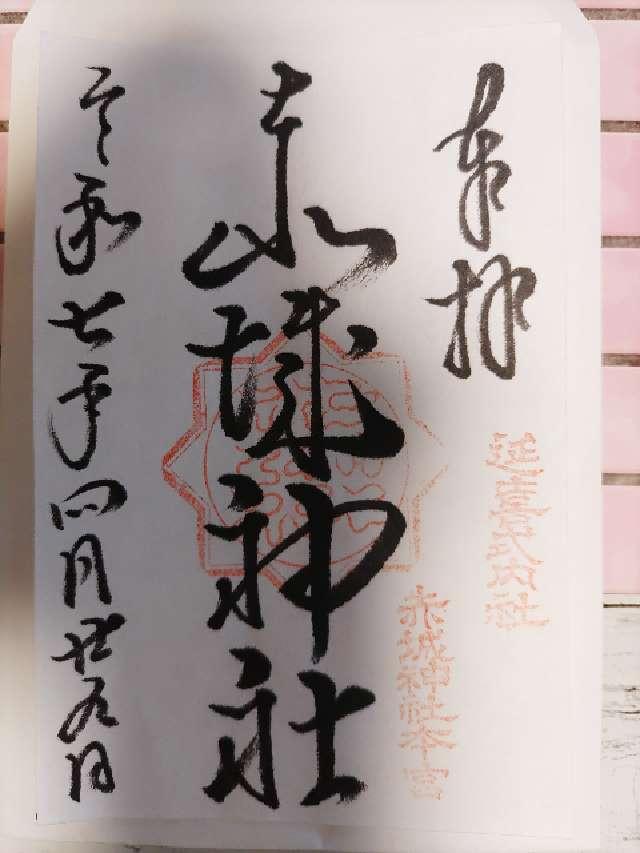 奉拝
延喜式内社
赤城神社本宮
赤城神社
令和七年四月廿九日